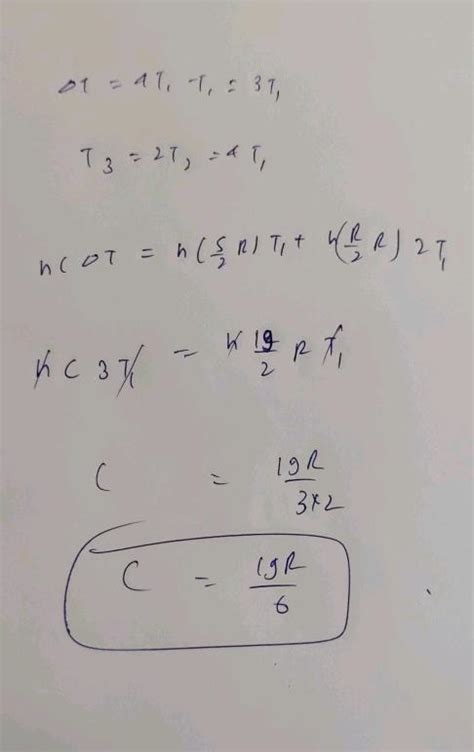 ΔT = 4T₁ - T₁ = 3T₁
T₃ = 2T₂ = 4T₁
nCΔT = n(5/2 R)T₁ + n(R/2 R)2T₁
nC3T₁ = n 19/2 R T₁
C = 19R/3×2
C = 19R/6